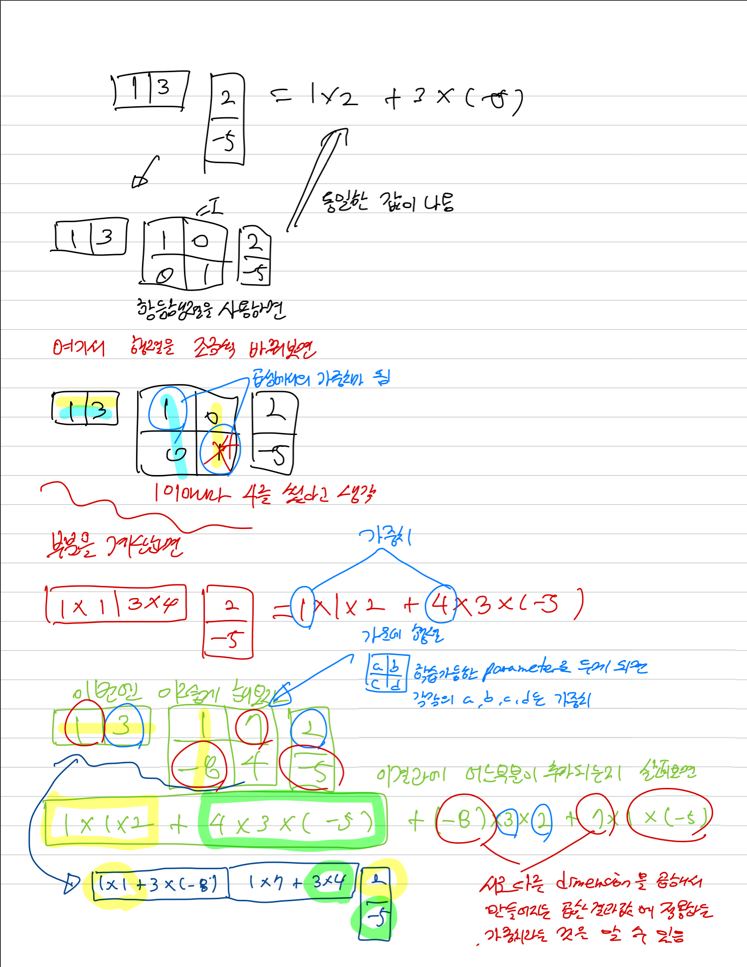 1 3 2 = 1×2 + 3×(-5)
-5
동일한 값이 나옴
=I
1 3 1 0 2
0 1 -5
항등행렬을 사용하면
여기서 행렬을 조금씩 바꿔보면
곱셈에서의 가중치가 됨
1 3 1 0 2
0 4 -5
1이아니라 4를 썼다고 생각
부분을 계산하면
가중치
1×1 3×4 2 = 1×1×2 + 4×3×(-5)
-5
가운데 행렬
a b 학습가능한 parameter로 두게 되면
c d 각각의 a, b, c, d는 가중치
이번엔 이렇게 해보자
1 3 1 7 2
-8 4 -5
이결과에 어느부분이 추가되는지 살펴보면
1×1×2 + 4×3×(-5) + (-8)×3×2 + 7×(1×(-5))
1×1+3×(-8) 1×7+3×4 2
-5
서로 다른 dimension을 곱해서
만들어지는 곱한 결과값에 적용하는
가중치라는 것은 알 수 있음